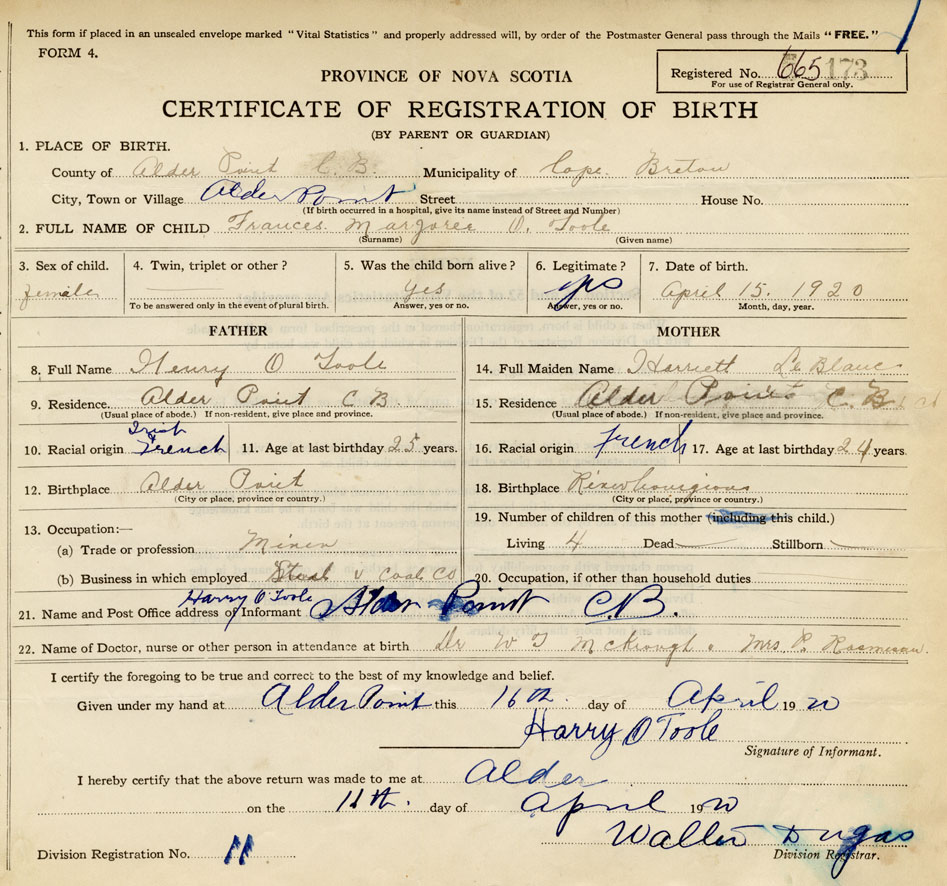 This form if placed in an unsealed envelope marked "Vital Statistics" and properly addressed will, by order of the Postmaster General pass through the Mails "FREE."
FORM 4.
PROVINCE OF NOVA SCOTIA
Registered No. 665 173
For use of Registrar General only.
CERTIFICATE OF REGISTRATION OF BIRTH
(BY PARENT OR GUARDIAN)
1. PLACE OF BIRTH.
County of Alder Point C. B. Municipality of Cape Breton
City, Town or Village Alder Point Street House No.
(If birth occurred in a hospital, give its name instead of Street and Number)
2. FULL NAME OF CHILD Frances Margoree O. Toole
(Surname) (Given name)
3. Sex of child. 4. Twin, triplet or other ? 5. Was the child born alive ? 6. Legitimate ? 7. Date of birth.
female yes yes April 15. 1920
To be answered only in the event of plural birth. Answer, yes or no. Answer, yes or no. Month, day, year.
FATHER MOTHER
8. Full Name Henry O Toole 14. Full Maiden Name Harriett Le Blanc
9. Residence. Alder Point C B. 15. Residence Alder Point C. B
(Usual place of abode.) If non-resident, give place and province. (Usual place of abode.) If non-resident, give place and province.
Irish
10. Racial origin French 11. Age at last birthday 25 years. 16. Racial origin French 17. Age at last birthday 24 years.
12. Birthplace Alder Point 18. Birthplace
(City or place, province or country.) (City or place, province or country.)
13. Occupation:— 19. Number of children of this mother (including this child.)
(a) Trade or profession Miner Living 4 Dead Stillborn
(b) Business in which employed Steel & Coal Co 20. Occupation, if other than household duties
Harry O'Toole
21. Name and Post Office address of Informant Alder Point C.B.
22. Name of Doctor, nurse or other person in attendance at birth Dr W T McKeough & Mrs P.
I certify the foregoing to be true and correct to the best of my knowledge and belief.
Given under my hand at Alder Point this 16th day of April 1920
Harry O Toole
Signature of Informant.
I hereby certify that the above return was made to me at Alder
on the 16th. day of April 1920
Walter Dugas
Division Registrar.
Division Registration No. 11